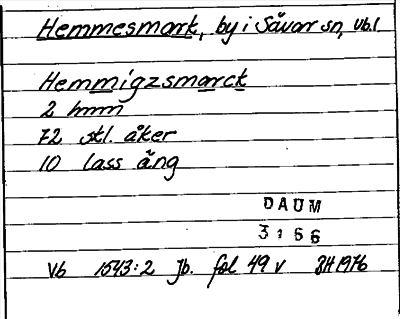 Hemmesmark, by i Sävar sn, Vb.l
Hemmigzsmarck
2 hmm
72 skl. åker
10 lass äng
DAUM
3166
Vb 1543:2 Jb. fol 49 v BH 1976